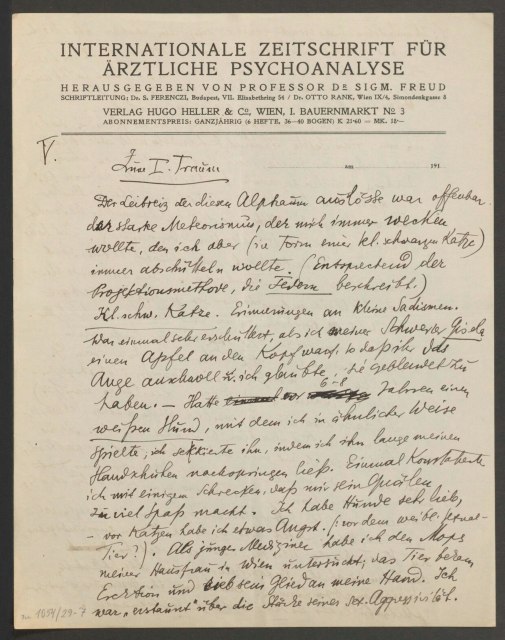 INTERNATIONALE ZEITSCHRIFT FÜR
ÄRZTLICHE PSYCHOANALYSE
HERAUSGEGEBEN VON PROFESSOR DR SIGM. FREUD
SCHRIFTLEITUNG: Dr. S. FERENCZI, Budapest, VII. Elisabethring 54 / Dr. OTTO RANK, Wien IX/4, Simondenkgasse 8
VERLAG HUGO HELLER & Co, WIEN, I. BAUERNMARKT No 3
ABONNEMENTSPREIS: GANZJÄHRIG (6 HEFTE, 36—40 BOGEN) K 21·60 = MK. 18·—
V.
am 191
Zum I. Traum
Der Leibreiz der diesen Alptraum auslösse war offenbar
der starke Meteorismus, der mich immer wecken
wollte, den ich aber (in Form einer kl. schwarzen Katze)
immer abschütteln wollte. (Entsprechend der
Projektionsmethode, die Federn beschreibt.)
Kl. schw. Katze. Erinnerungen an kleine Sadismen.
War einmal sehr erschüttert, als ich meiner Schwester Gisela
einen Apfel an den Kopf warf, so daß ihr das
Auge anschwoll u. ich glaubte, sie geblendet zu
haben. — Hatte vor 6-8 Jahren einen
weißen Hund, mit dem ich in ähnlicher Weise
spielte, ich sekkierte ihn, indem ich ihn lange meinen
Handschuhen nachspringen ließ. Einmal konstatierte
ich mit einigem Schrecken, daß mir sein Quälen
zu viel Spaß macht. Ich habe Hunde sehr lieb,
— vor Katzen habe ich etwas Angst. (: vor dem weibl. sexual-
Tier?). Als junger Mediziner habe ich den Mops
meiner Hausfrau in Wien untersucht; das Tier bekam
Erektion und rieb sein Glied an meine Hand. Ich
war „erstaunt" über die Stärke seiner sex. Aggressivität.
1054/29-7